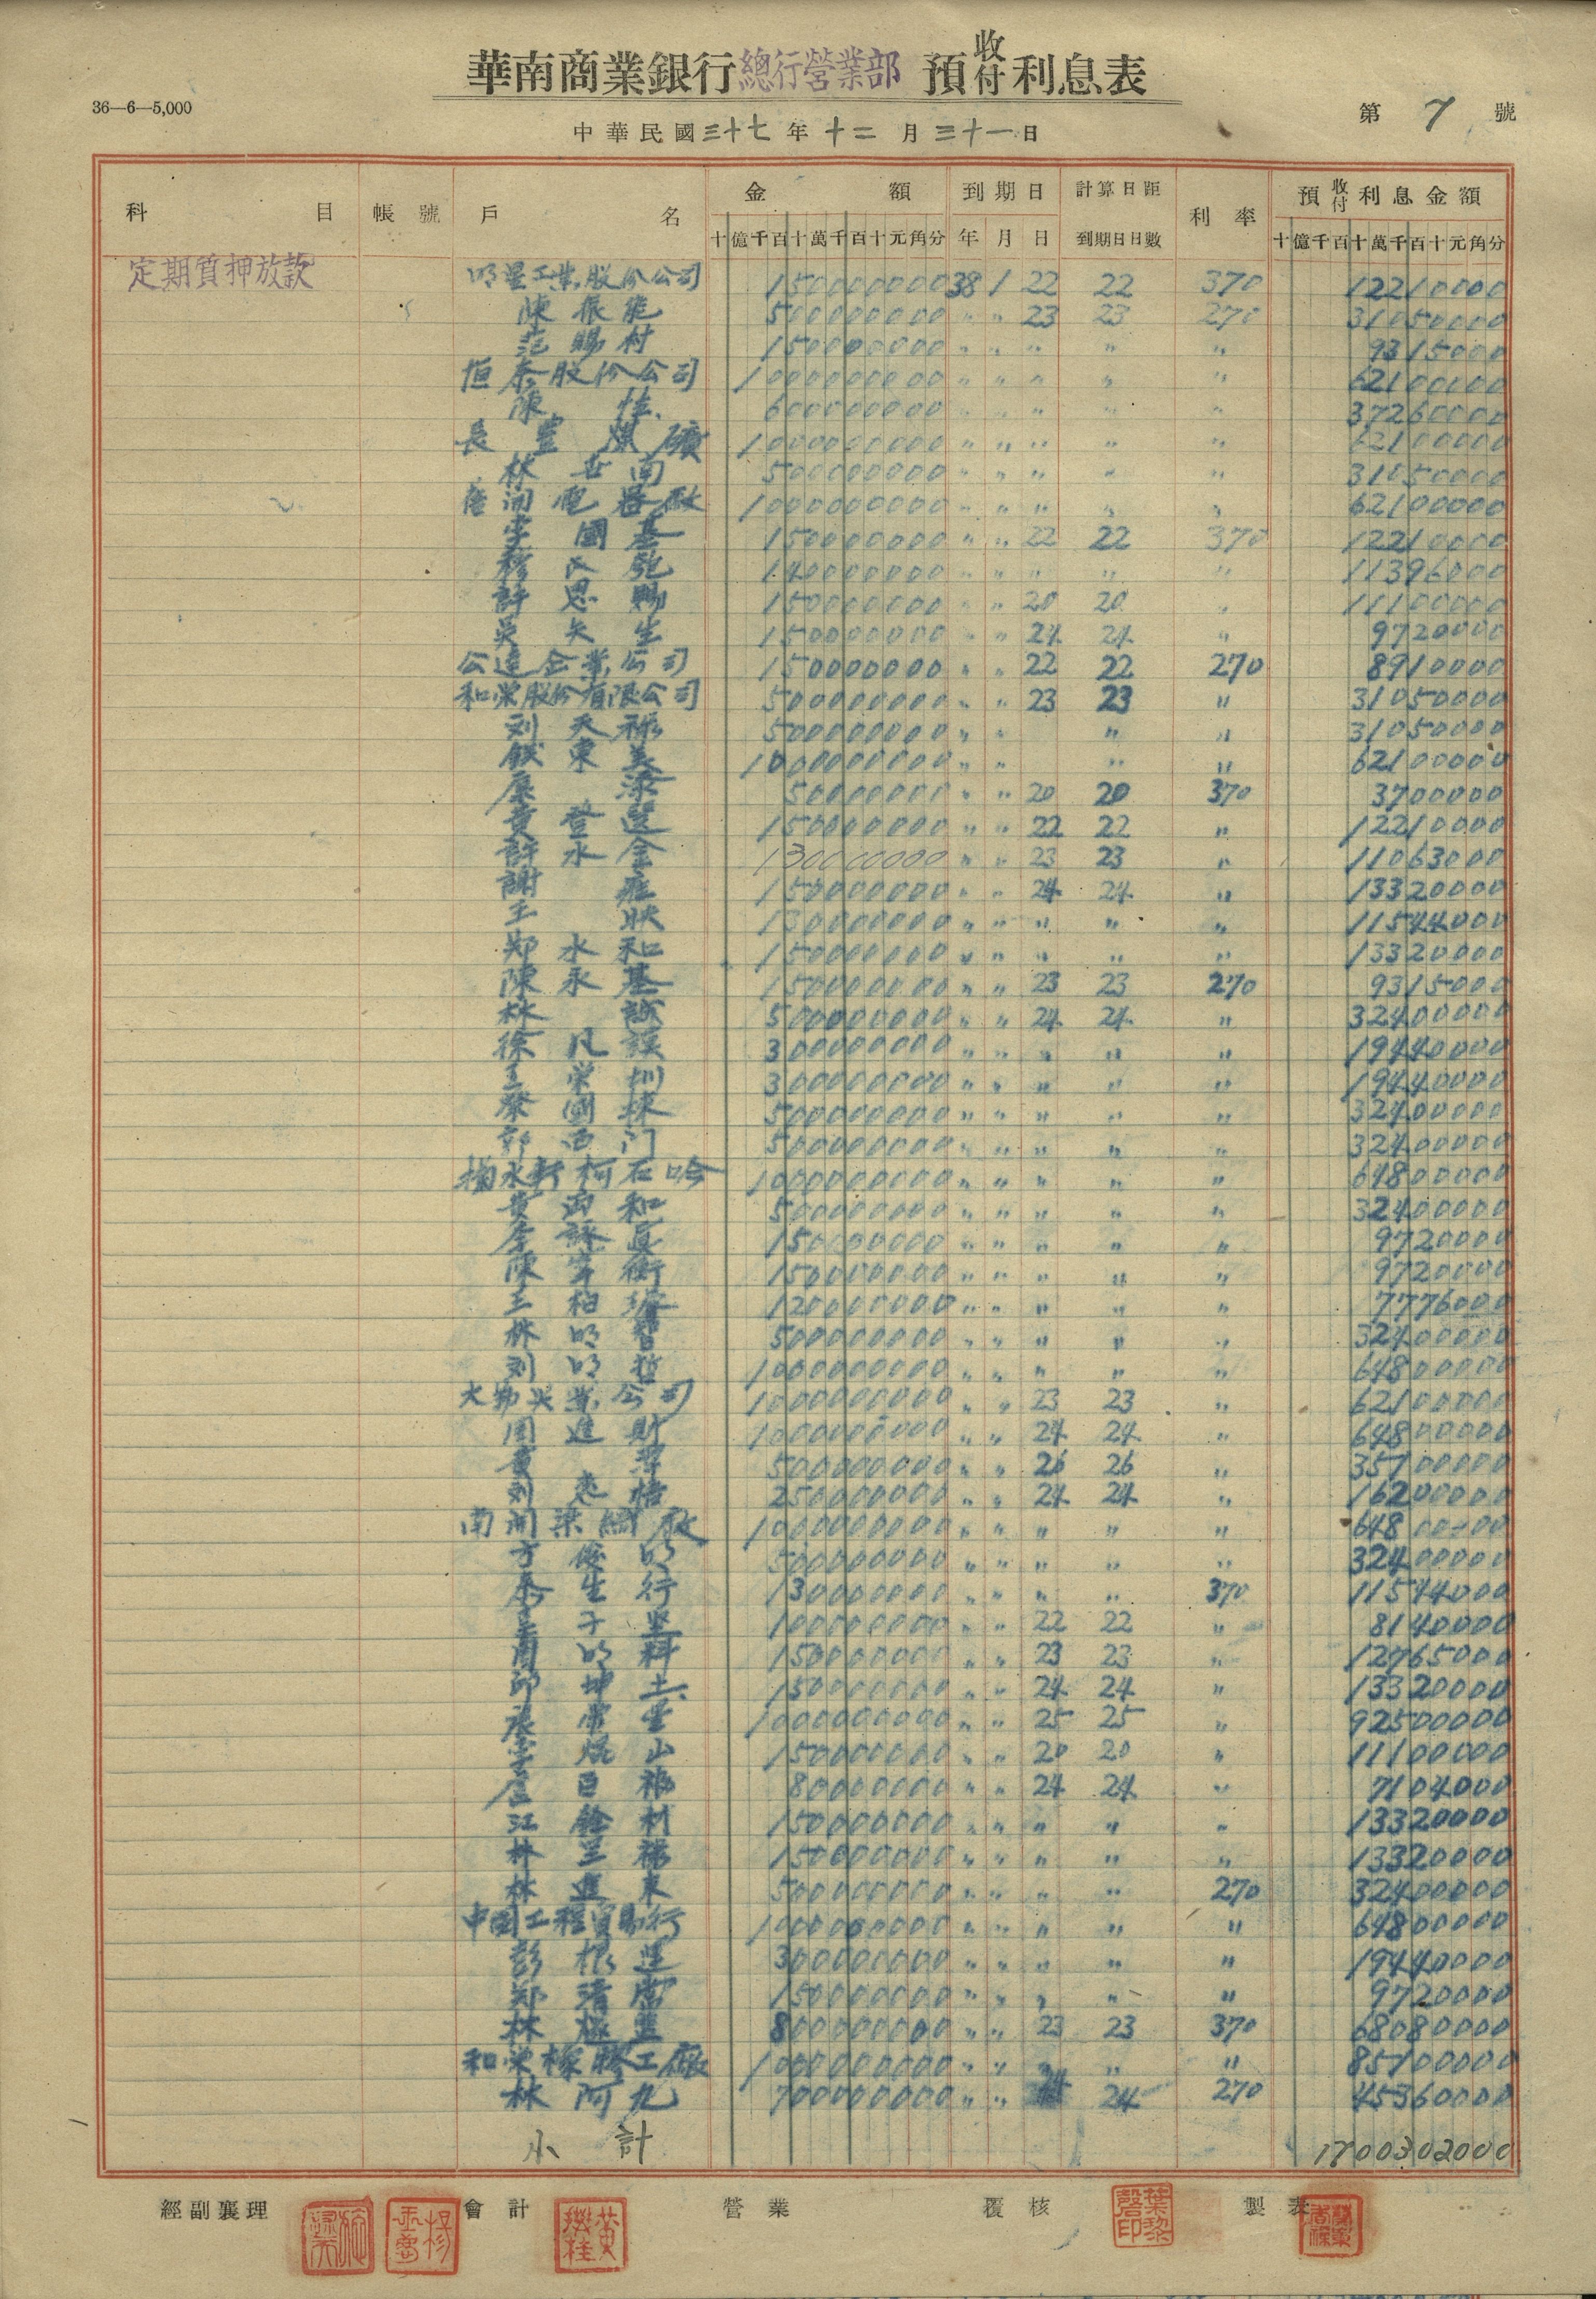 華南商業銀行總行營業部 預收付利息表
36—6—5,000
第 7 號
中華民國三十七年十二月三十一日
科目 帳號 戶名 金額 到期日 計算日距到期日日數 利率 預收付利息金額
十億千百十萬千百十元角分 年 月 日 十億千百十萬千百十元角分
定期質押放款 明星工業股份公司 1500000000 38 1 22 22 370 12210000
陳振能 5000000000 〃 〃 23 23 270 31050000
范賜村 1500000000 〃 〃 〃 〃 〃 9315000
恒泰股份公司 10000000000 〃 〃 〃 〃 〃 62100000
陳 6000000000 〃 〃 〃 〃 〃 37260000
長豐煤礦 10000000000 〃 〃 〃 〃 〃 62100000
林世南 5000000000 〃 〃 〃 〃 〃 31050000
電器廠 10000000000 〃 〃 〃 〃 〃 62100000
李國基 1500000000 〃 〃 22 22 370 12210000
1400000000 〃 〃 〃 〃 〃 11396000
許恩賜 1500000000 〃 〃 20 20 〃 11100000
吳矢生 1500000000 〃 〃 24 24 〃 9720000
公達企業公司 1500000000 〃 〃 22 22 270 8910000
和榮股份有限公司 5000000000 〃 〃 23 23 〃 31050000
刘天祿 5000000000 〃 〃 〃 〃 31050000
錢東美 10000000000 〃 〃 〃 〃 62100000
500000000 〃 〃 20 20 370 3700000
黃登選 1500000000 〃 〃 22 22 〃 12210000
許水金 1300000000 〃 〃 23 23 〃 11063000
謝 1500000000 〃 〃 24 24 〃 13320000
王 1300000000 〃 〃 〃 〃 〃 11544000
郑水和 1500000000 〃 〃 〃 〃 〃 13320000
陳永基 1500000000 〃 〃 23 23 270 9315000
林誠 5000000000 〃 〃 24 24 〃 32400000
徐 3000000000 〃 〃 〃 〃 〃 19440000
王榮圳 3000000000 〃 〃 〃 〃 〃 19440000
蔡國球 5000000000 〃 〃 〃 〃 〃 32400000
郭西门 5000000000 〃 〃 〃 〃 〃 32400000
永軒柯石哈 10000000000 〃 〃 〃 〃 〃 64800000
黃西和 5000000000 〃 〃 〃 〃 〃 32400000
李詠真 1500000000 〃 〃 〃 〃 〃 9720000
陳宗衛 1500000000 〃 〃 〃 〃 〃 9720000
王柏 1200000000 〃 〃 〃 〃 〃 7776000
林明智 5000000000 〃 〃 〃 〃 〃 32400000
刘明哲 10000000000 〃 〃 〃 〃 〃 64800000
大物兴業公司 10000000000 〃 〃 23 23 〃 62100000
周進財 10000000000 〃 〃 24 24 〃 64800000
黃 5000000000 〃 〃 26 26 〃 35100000
刘 2500000000 〃 〃 24 24 〃 16200000
南潤染織廠 10000000000 〃 〃 〃 〃 〃 64800000
方俊明 5000000000 〃 〃 〃 〃 〃 32400000
泰生行 1300000000 〃 〃 〃 〃 370 11544000
王子堅 1000000000 〃 〃 22 22 〃 8140000
周明科 1500000000 〃 〃 23 23 〃 12765000
邱坤土 1500000000 〃 〃 24 24 〃 13320000
張常雲 10000000000 〃 〃 25 25 〃 92500000
李炳山 1500000000 〃 〃 20 20 〃 11100000
盧百福 800000000 〃 〃 24 24 〃 7104000
江餘利 1500000000 〃 〃 〃 〃 〃 13320000
林呈祿 1500000000 〃 〃 〃 〃 〃 13320000
林進東 5000000000 〃 〃 〃 〃 270 32400000
中國工程貿易行 10000000000 〃 〃 〃 〃 〃 64800000
彭根運 3000000000 〃 〃 〃 〃 〃 19440000
郑清富 1500000000 〃 〃 〃 〃 〃 9720000
林極盛 8000000000 〃 〃 23 23 370 68080000
和榮橡膠工廠 10000000000 〃 〃 〃 〃 〃 85100000
林阿九 7000000000 〃 〃 24 24 270 45360000
小計 1700302000
經副襄理 會計 營業 覆核 製表